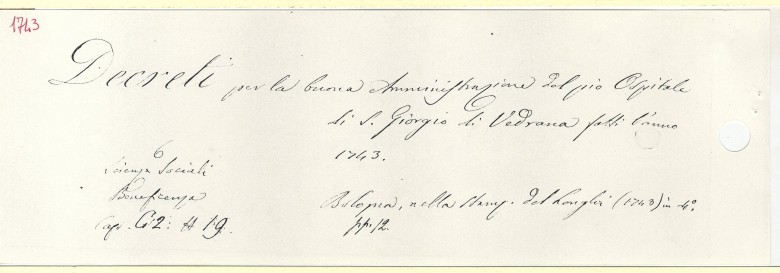 1743
Decreti per la buona Amministrazione del pio Ospitale
di S. Giorgio di Vedrana fatti l'anno
1743.
6
Scienze Sociali
Beneficenza
Cap. G2: # 19.
Bologna, nella Stamp. del Longhi (1743) in 4°.
pp. 12.